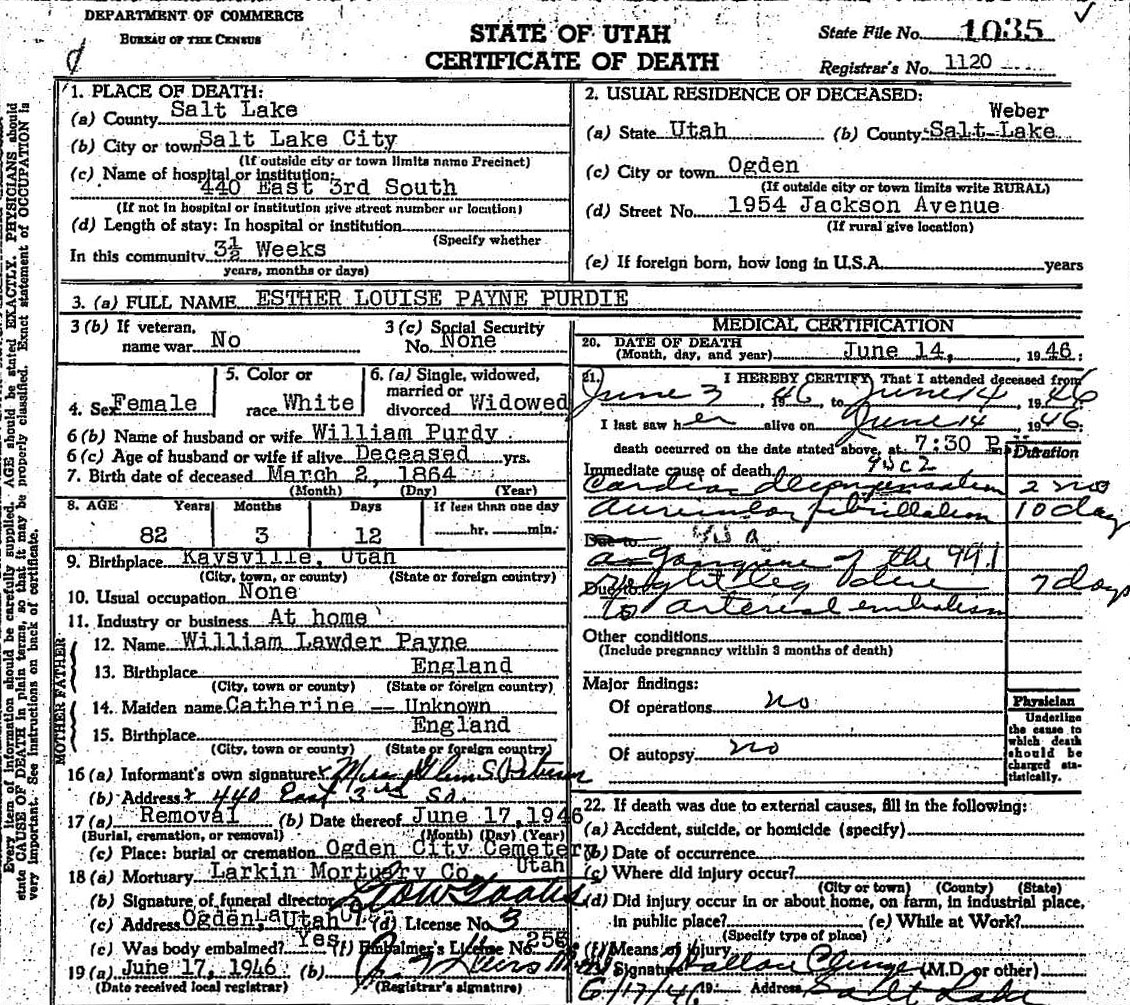 DEPARTMENT OF COMMERCE
BUREAU OF THE CENSUS
STATE OF UTAH
CERTIFICATE OF DEATH
State File No. 1035
Registrar's No. 1120
Every item of information should be carefully supplied. AGE should be stated EXACTLY. PHYSICIANS should
state CAUSE OF DEATH in plain terms, so that it may be properly classified. Exact statement of OCCUPATION is
very important. See instructions on back of certificate.
1. PLACE OF DEATH:
(a) County Salt Lake
(b) City or town Salt Lake City
(If outside city or town limits name Precinct)
(c) Name of hospital or institution:
440 East 3rd South
(If not in hospital or institution give street number or location)
(d) Length of stay: In hospital or institution
(Specify whether
In this community 3½ Weeks
years, months or days)
2. USUAL RESIDENCE OF DECEASED:
Weber
(a) State Utah (b) County Salt Lake
(c) City or town Ogden
(If outside city or town limits write RURAL)
(d) Street No. 1954 Jackson Avenue
(If rural give location)
(e) If foreign born, how long in U.S.A. years
3. (a) FULL NAME ESTHER LOUISE PAYNE PURDIE
3 (b) If veteran, name war No
3 (c) Social Security No. None
4. Sex Female
5. Color or race White
6. (a) Single, widowed, married or divorced Widowed
6 (b) Name of husband or wife William Purdy
6 (c) Age of husband or wife if alive Deceased yrs.
7. Birth date of deceased March 2, 1864
(Month) (Day) (Year)
8. AGE Years Months Days If less than one day
82 3 12 hr. min.
9. Birthplace Kaysville, Utah
(City, town, or county) (State or foreign country)
10. Usual occupation None
11. Industry or business At home
FATHER
12. Name William Lawder Payne
13. Birthplace England
(City, town or county) (State or foreign country)
MOTHER
14. Maiden name Catherine -- Unknown
15. Birthplace England
(City, town or county) (State or foreign country)
16 (a) Informant's own signature x Mrs. Glenn S. Peterson
(b) Address x 440 East 3rd So.
17 (a) Removal (b) Date thereof June 17, 1946
(Burial, cremation, or removal) (Month) (Day) (Year)
(c) Place: burial or cremation Ogden City Cemetery
Utah
18 (a) Mortuary Larkin Mortuary Co
(b) Signature of funeral director
(c) Address Ogden, Utah (d) License No. 3
(e) Was body embalmed? Yes (f) Embalmer's License No. 256
19 (a) June 17, 1946 (b)
(Date received local registrar) (Registrar's signature)
MEDICAL CERTIFICATION
20. DATE OF DEATH
(Month, day, and year) June 14, 1946
21. I HEREBY CERTIFY, That I attended deceased from
June 3, 1946 to June 14 1946
I last saw her alive on June 14 1946
death occurred on the date stated above, at 7:30 P.M
Duration
Immediate cause of death 95C2
Cardiac decompensation 2 mo
Auricular fibrillation 10 day
Due to
gangrene of the 99.1
Due to right leg 7 days
to arterial embolism
Other conditions
(Include pregnancy within 3 months of death)
Major findings:
Of operations no
Of autopsy no
Physician
Underline the cause to which death should be charged statistically.
22. If death was due to external causes, fill in the following:
(a) Accident, suicide, or homicide (specify)
(b) Date of occurrence
(c) Where did injury occur?
(City or town) (County) (State)
(d) Did injury occur in or about home, on farm, in industrial place,
in public place? (e) While at Work?
(Specify type of place)
(f) Means of injury
23. Signature (M.D. or other)
6/17/46 19 Address Salt Lake